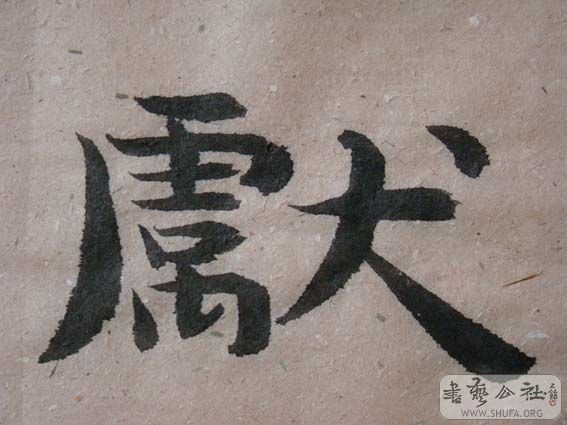 獻
書藝公社
WWW.SHUFA.ORG